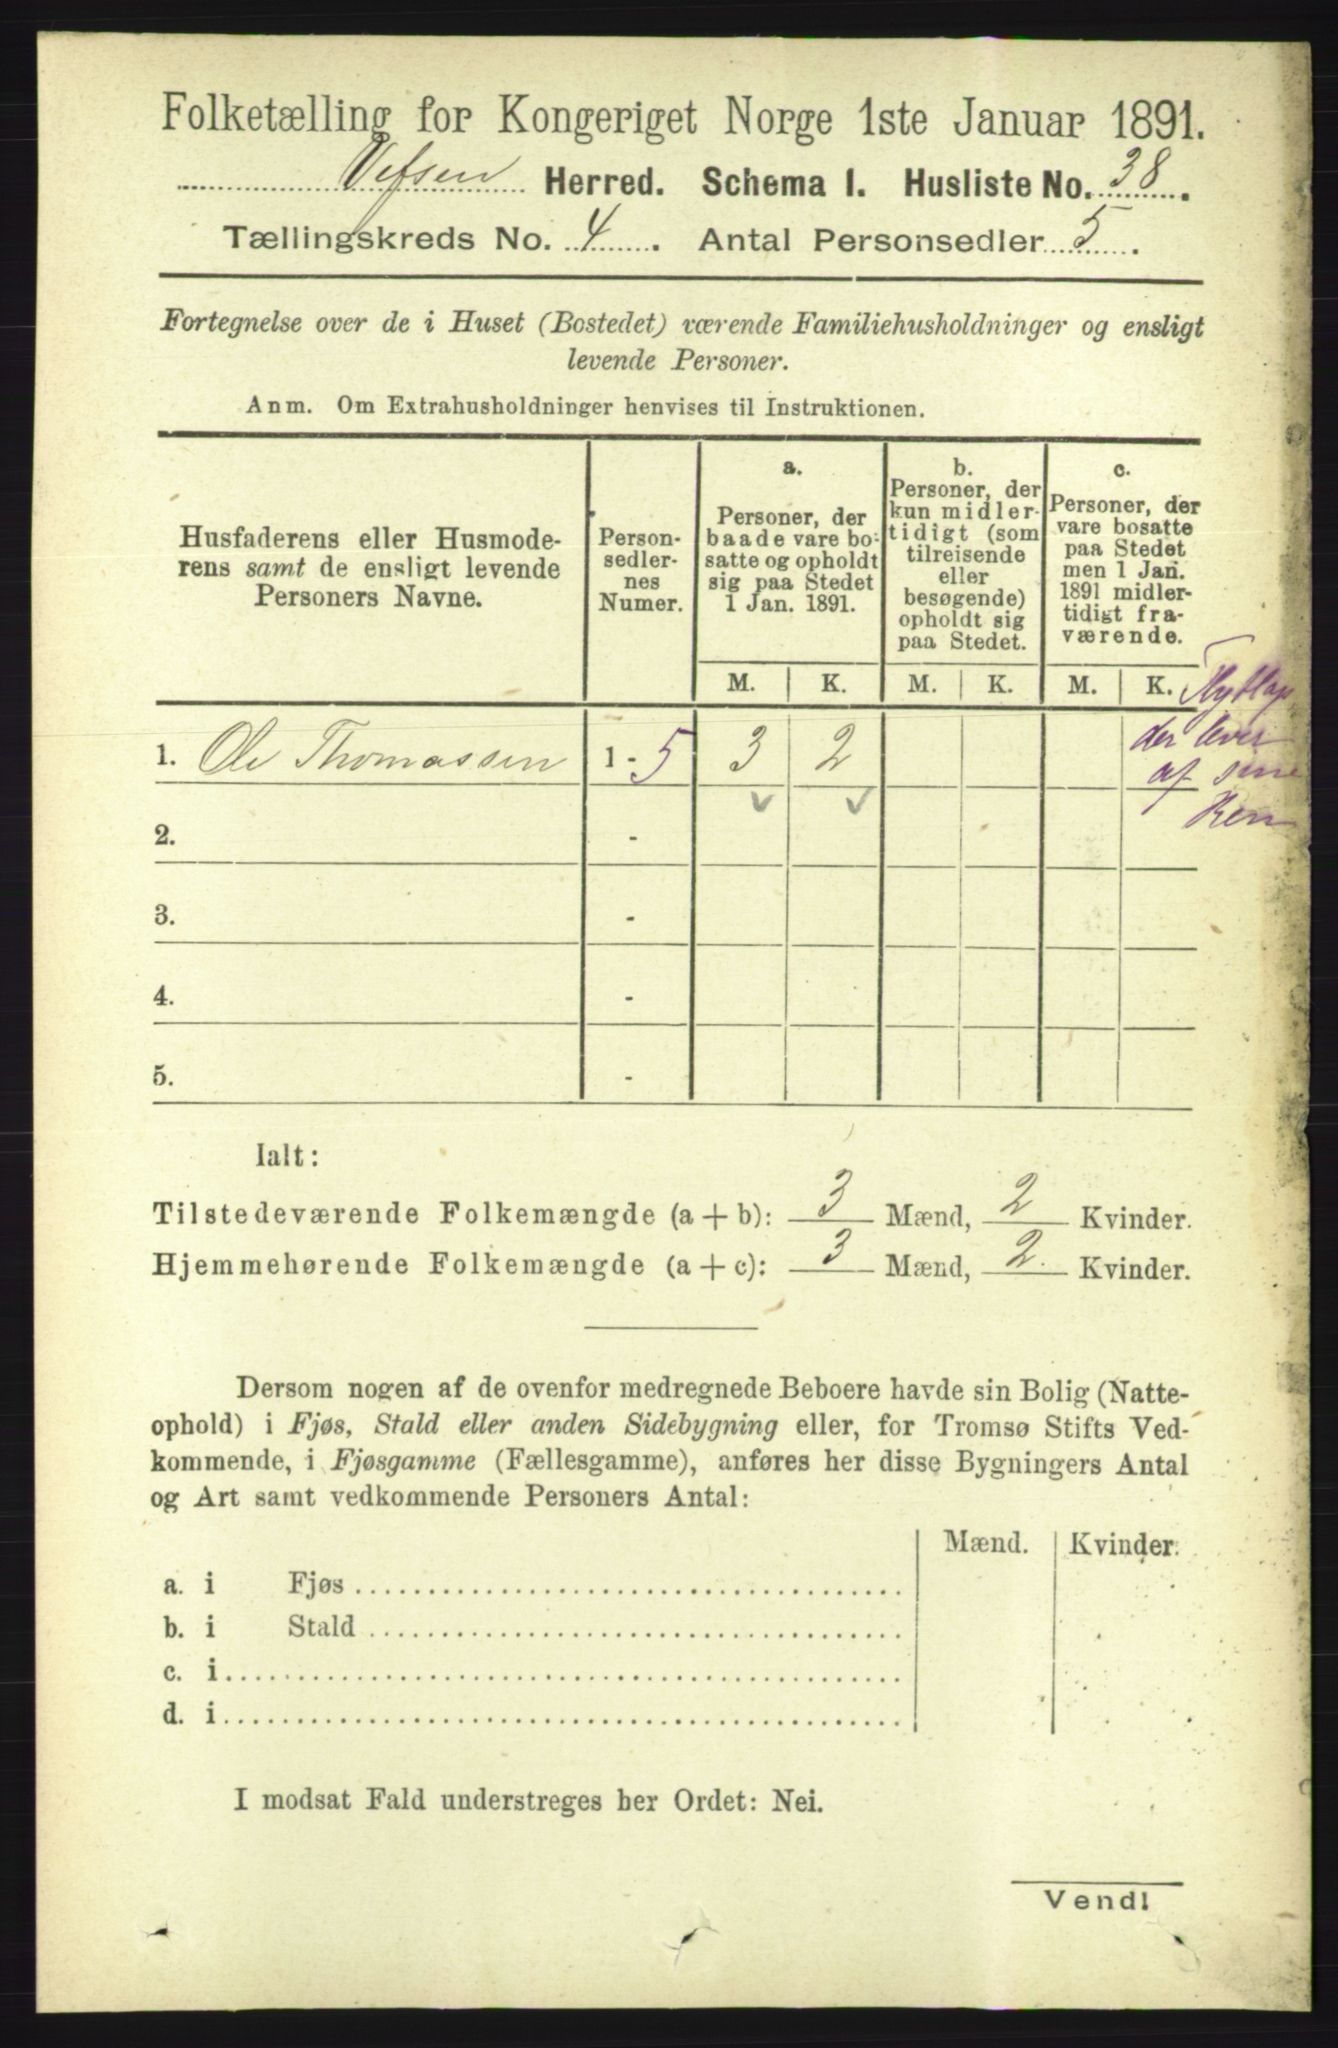 Folketælling for Kongeriget Norge 1ste Januar 1891.
Vefsen Herred. Schema I. Husliste No. 38.
Tællingskreds No. 4. Antal Personsedler 5.
Fortegnelse over de i Huset (Bostedet) værende Familiehusholdninger og ensligt
levende Personer.
Anm. Om Extrahusholdninger henvises til Instruktionen.
Husfaderens eller Husmode-
rens samt de ensligt levende
Personers Navne.
Person-
sedler-
nes
Numer.
a.
Personer, der
baade vare bo-
satte og opholdt
sig paa Stedet
1 Jan. 1891.
b.
Personer, der
kun midler-
tidigt (som
tilreisende
eller
besøgende)
opholdt sig
paa Stedet.
c.
Personer, der
vare bosatte
paa Stedet
men 1 Jan.
1891 midler-
tidigt fra-
værende.
M. K. M. K. M. K.
1. Ole Thomassen 1 - 5 3 2
Flytlap
der lever
af sine
Ren
2. -
3. -
4. -
5. -
Ialt:
Tilstedeværende Folkemængde (a + b): 3 Mænd, 2 Kvinder.
Hjemmehørende Folkemængde (a + c): 3 Mænd, 2 Kvinder.
Dersom nogen af de ovenfor medregnede Beboere havde sin Bolig (Natte-
ophold) i Fjøs, Stald eller anden Sidebygning eller, for Tromsø Stifts Ved-
kommende, i Fjøsgamme (Fællesgamme), anføres her disse Bygningers Antal
og Art samt vedkommende Personers Antal:
Mænd. Kvinder.
a. i Fjøs
b. i Stald
c. i
d. i
I modsat Fald understreges her Ordet: Nei.
Vend!